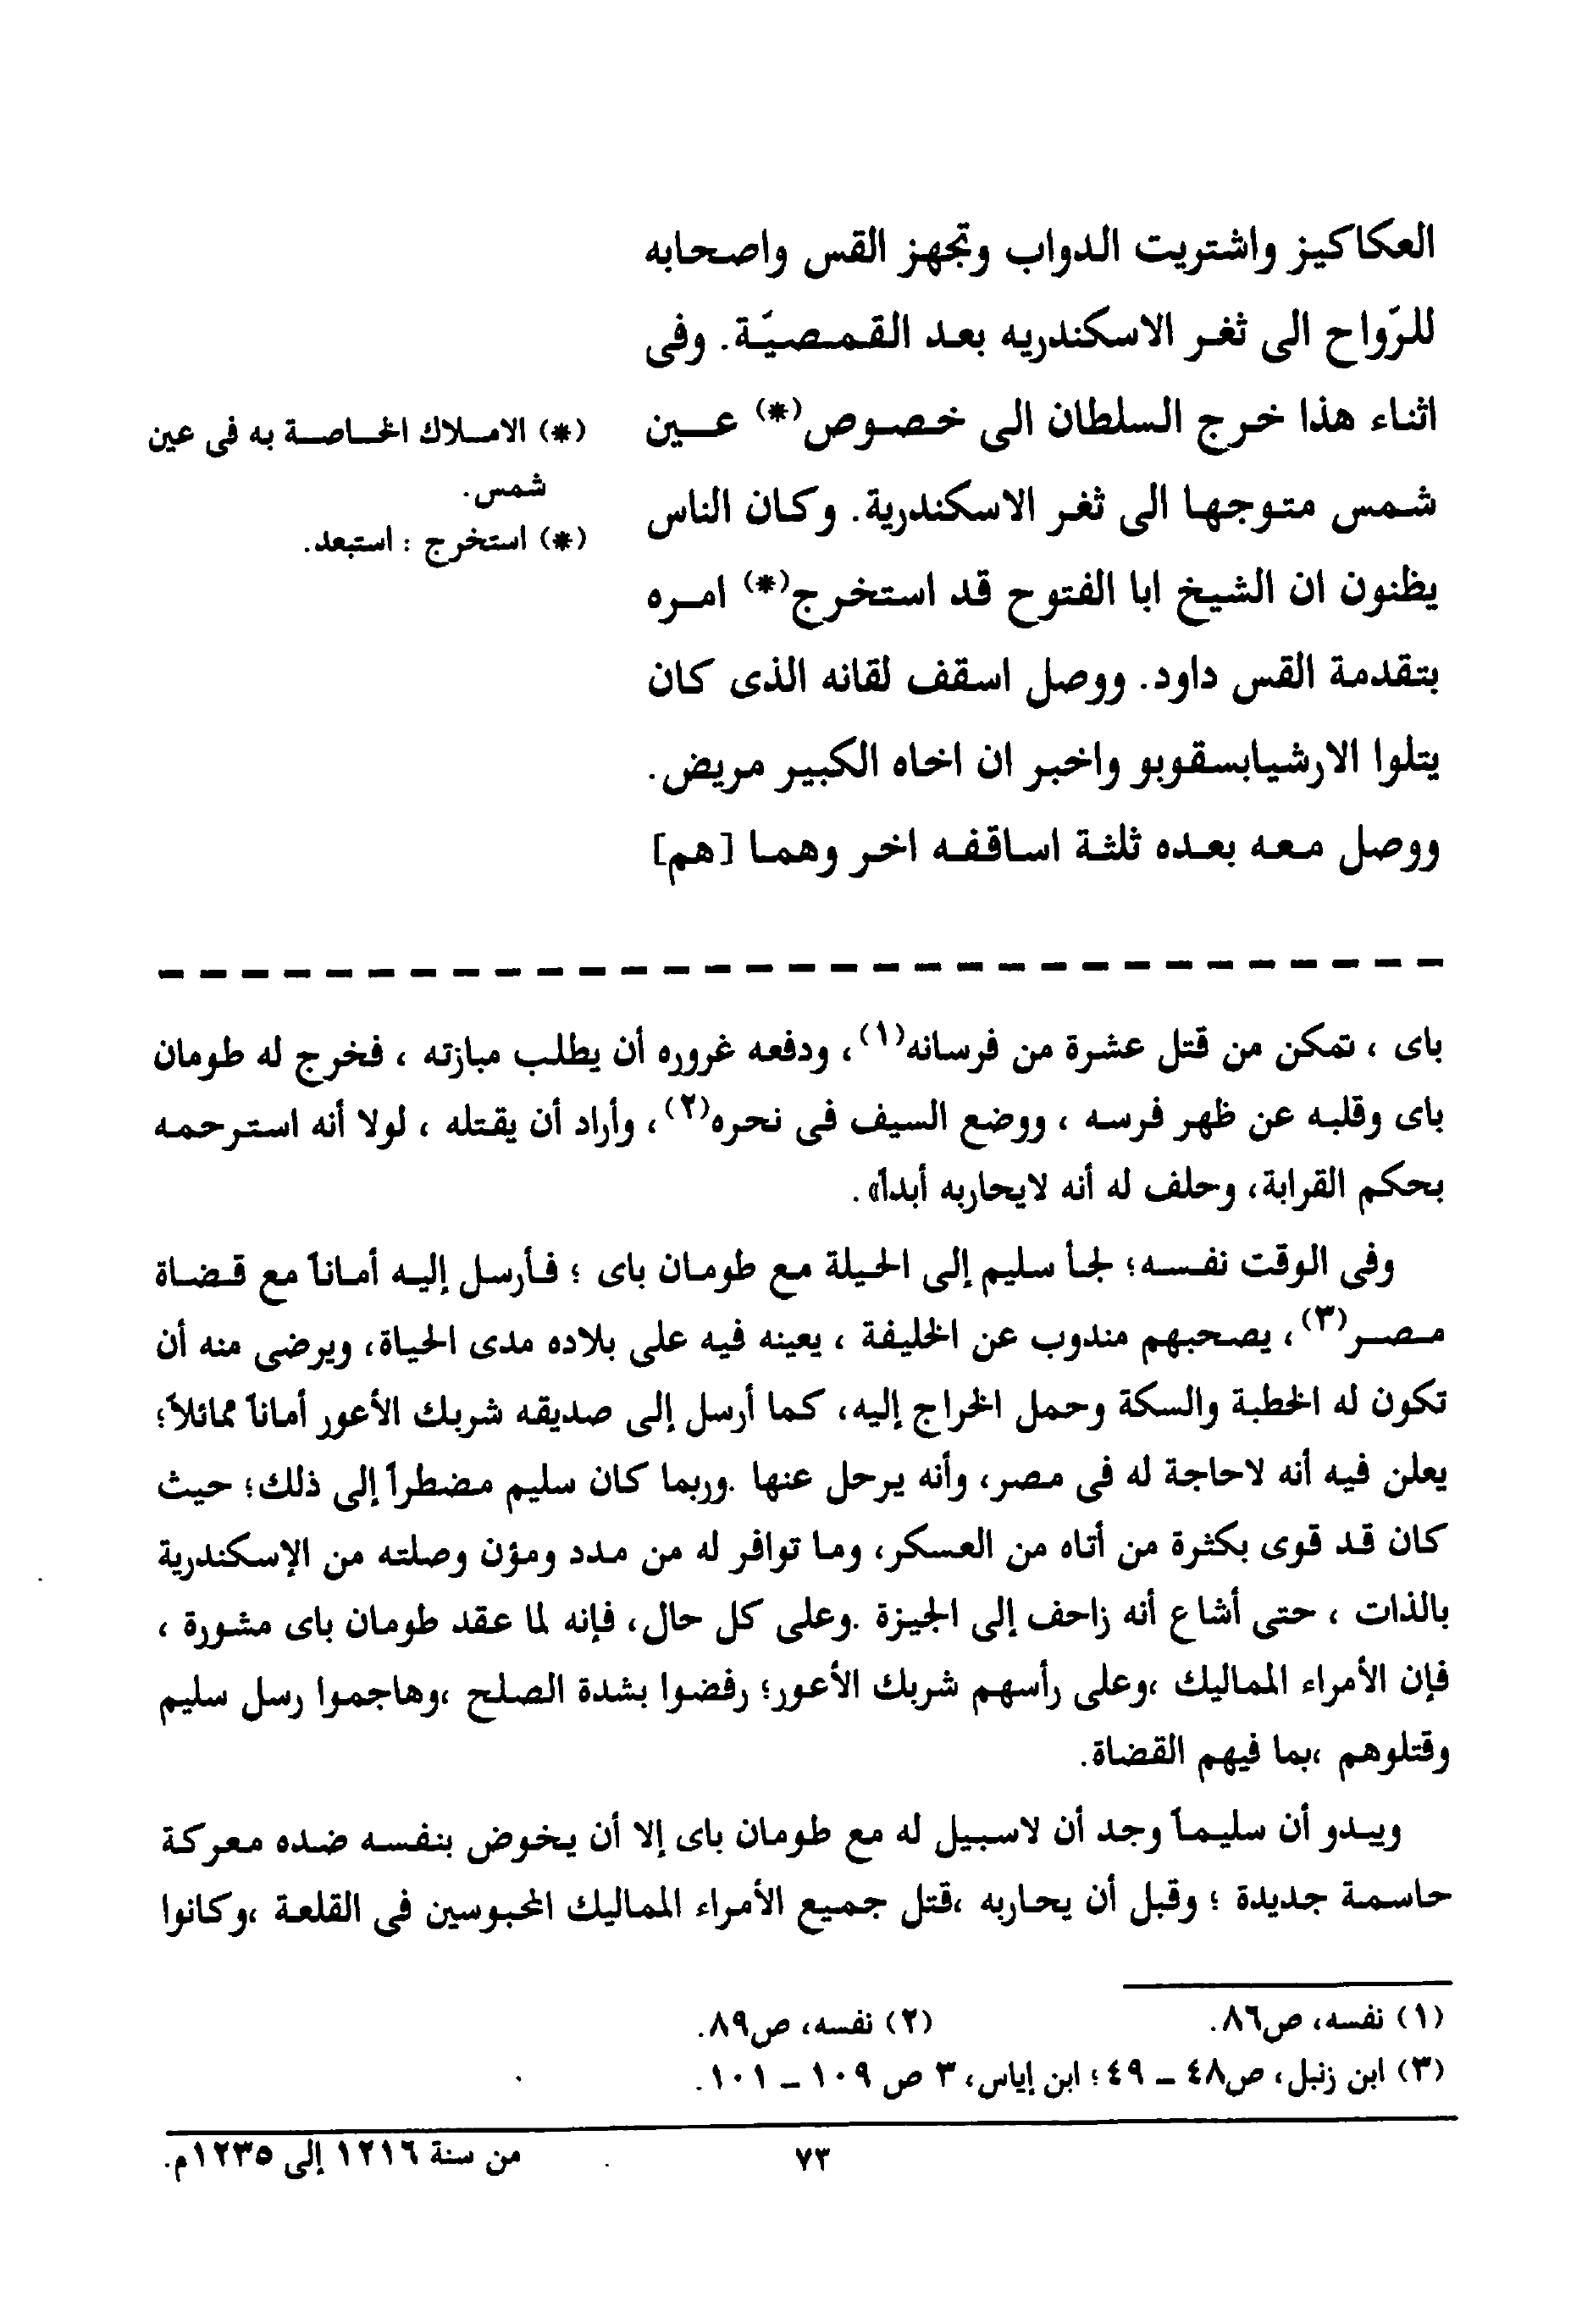 العكاكيز واشتريت الدواب وتجهز القس واصحابه
للرّواح الى ثغر الاسكندريه بعد القمصيّة. وفى
اثناء هذا خرج السلطان الى خصوص(*) عين
شمس متوجها الى ثغر الاسكندرية. وكان الناس
يظنون ان الشيخ ابا الفتوح قد استخرج(*) امره
بتقدمة القس داود. ووصل اسقف لقانه الذى كان
يتلوا الارشيابسقوبو واخبر ان اخاه الكبير مريض.
ووصل معه بعده ثلثة اساقفه اخر وهما [هم]
(*) الاملاك الخاصة به فى عين
شمس.
(*) استخرج : استبعد.
باى ، تمكن من قتل عشرة من فرسانه(١)، ودفعه غروره أن يطلب مبازته ، فخرج له طومان
باى وقلبه عن ظهر فرسه ، ووضع السيف فى نحره(٢)، وأراد أن يقتله ، لولا أنه استرحمه
بحكم القرابة، وحلف له أنه لايحاربه أبداً».
وفى الوقت نفسه؛ لجأ سليم إلى الحيلة مع طومان باى ؛ فأرسل إليه أماناً مع قضاة
مصر(٣)، يصحبهم مندوب عن الخليفة ، يعينه فيه على بلاده مدى الحياة، ويرضى منه أن
تكون له الخطبة والسكة وحمل الخراج إليه، كما أرسل إلى صديقه شربك الأعور أماناً مماثلاً؛
يعلن فيه أنه لاحاجة له فى مصر، وأنه يرحل عنها .وربما كان سليم مضطراً إلى ذلك؛ حيث
كان قد قوى بكثرة من أتاه من العسكر، وما توافر له من مدد ومؤن وصلته من الإسكندرية
بالذات ، حتى أشاع أنه زاحف إلى الجيزة .وعلى كل حال، فإنه لما عقد طومان باى مشورة ،
فإن الأمراء المماليك ،وعلى رأسهم شربك الأعور؛ رفضوا بشدة الصلح ،وهاجموا رسل سليم
وقتلوهم ،بما فيهم القضاة.
ويبدو أن سليماً وجد أن لاسبيل له مع طومان باى إلا أن يخوض بنفسه ضده معركة
حاسمة جديدة ؛ وقبل أن يحاربه ،قتل جميع الأمراء المماليك المحبوسين فى القلعة ،وكانوا
(١) نفسه، ص٨٦. (٢) نفسه، ص٨٩.
(٣) ابن زنبل، ص٤٨ – ٤٩؛ ابن إياس، ٣ ص ١٠٩ – ١٠١.
٧٣ من سنة ١٢١٦ إلى ١٢٣٥م.